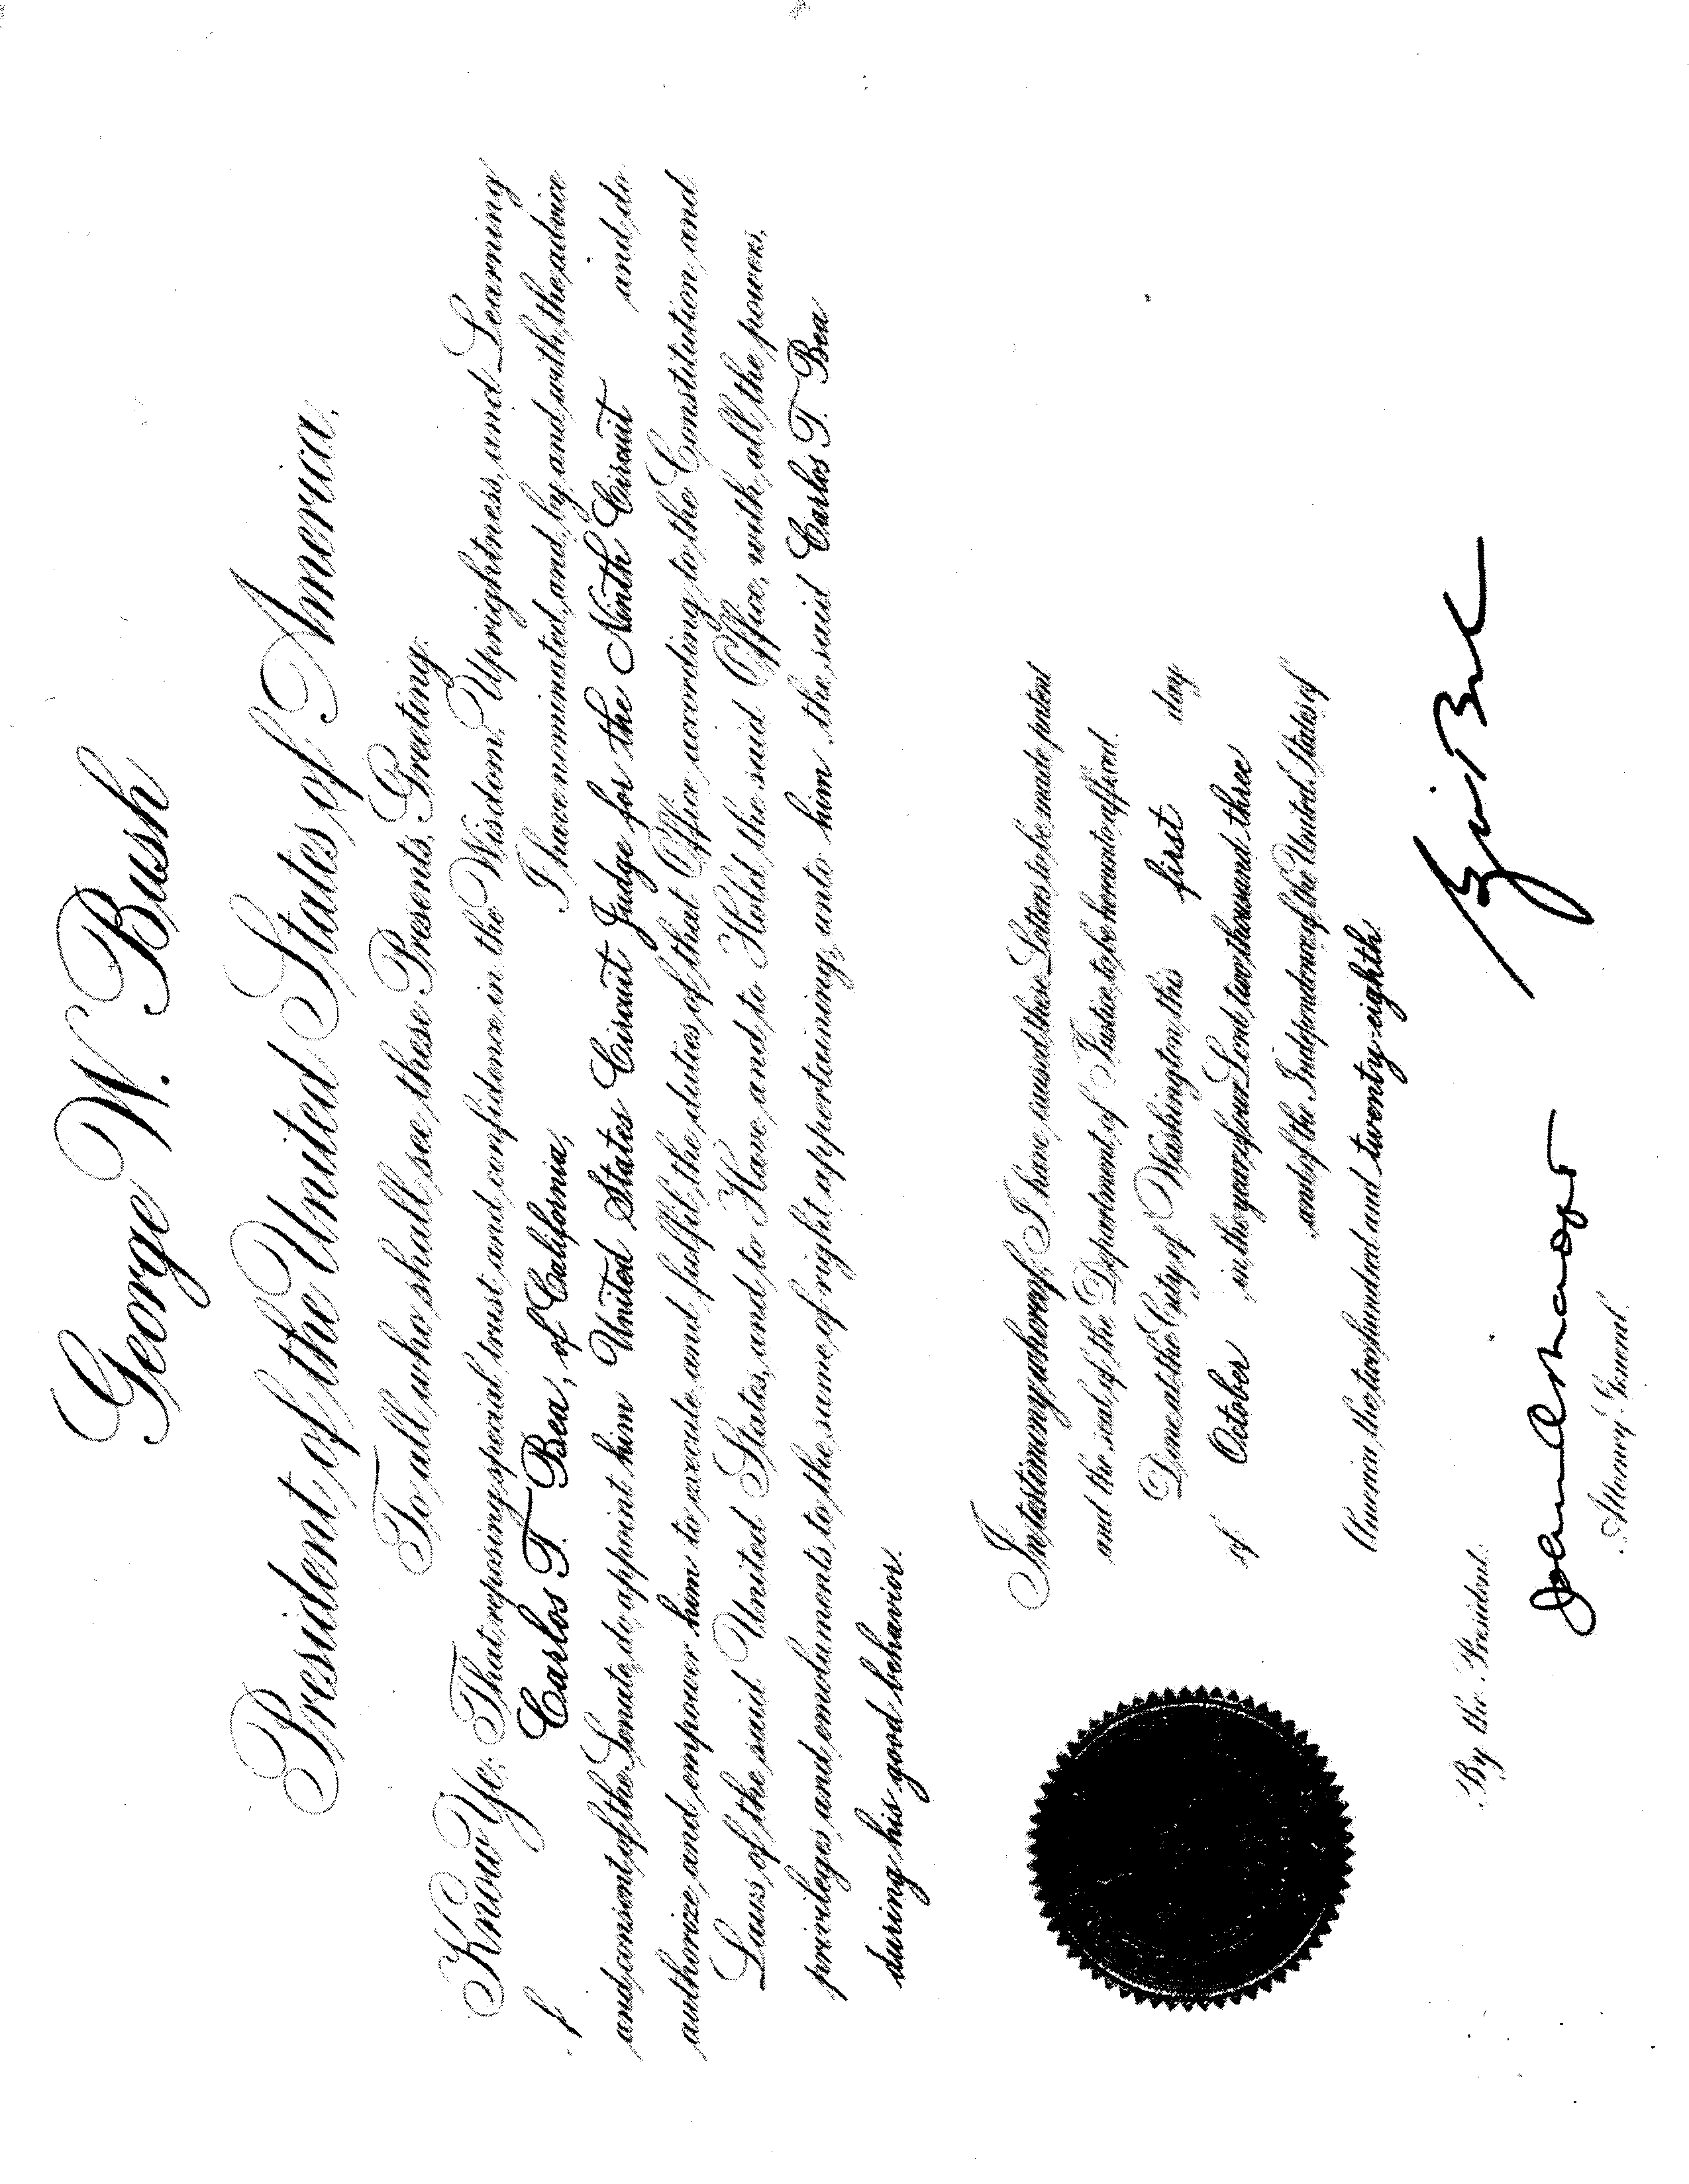 George W. Bush
President of the United States of America,
To all who shall see these Presents, Greeting:
Know Ye; That reposing special trust and confidence in the Wisdom, Uprightness, and Learning
of Carlos T. Bea, of California, I have nominated, and, by and with the advice
and consent of the Senate, do appoint him United States Circuit Judge for the Ninth Circuit and do
authorize and empower him to execute and fulfil the duties of that Office according to the Constitution and
Laws of the said United States, and to Have and to Hold the said Office, with all the powers,
privileges and emoluments to the same of right appertaining, unto him the said Carlos T. Bea
during his good behavior.
In testimony whereof, I have caused these Letters to be made patent
and the seal of the Department of Justice to be hereunto affixed.
Done at the City of Washington this first day
of October in the year of our Lord two thousand three
and of the Independence of the United States of
America the two hundred and twenty-eighth.
By the President:
Attorney General.